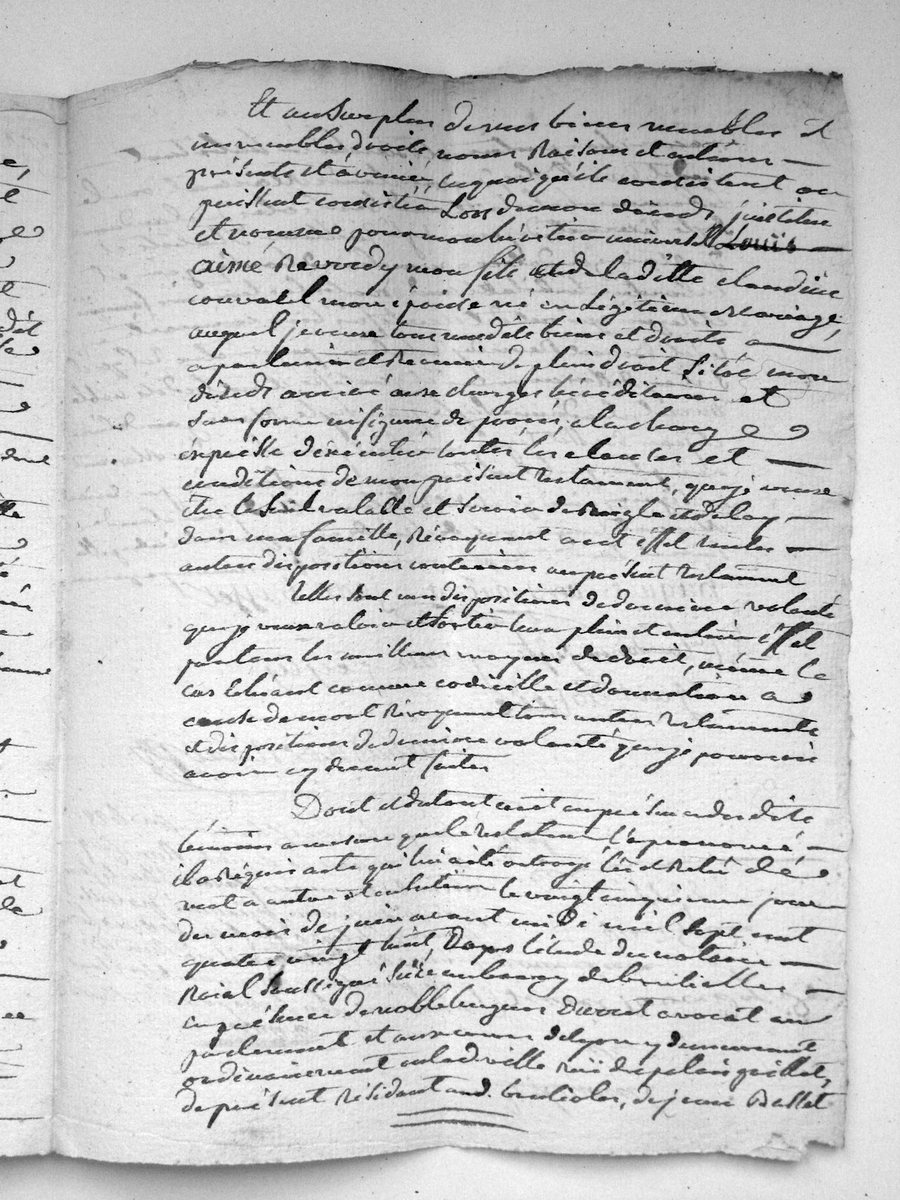 Et au surplus de mes biens meubles et
immeubles droits, noms Raisons et actions
présents et à venir, en quoi qu'ils consistent ou
puissent consister Lors de mon décèds, j'institue
et nomme pour mon héritier universel Louis
aimé Revordy mon fils et de laditte claudine
mon épouse né en Légitime Mariage,
auquel je veux tous mesdits biens et droits
appartenir et de plein droit sitôt mon
décèds arrivé aux charges héréditaires et
sans forme ni figure de procès, a la charge
expresse d'exécuter toutes les clauses et
conditions de mon présent testament, que je veux
être le seul valable et servir de Reigle et de loy
dans ma famille, Révoquant a cet effet toutes
autres dispositions contraires au présent testament
Telles sont mes dispositions de dernière volonté
que je veux valoir et sortir leur plein et entier effet
par tous les meilleurs moyens de droit, même le
cas échéant comme codicille et donnation a
cause de mort Révoquant tous autres testaments
et dispositions de dernière volonté que je pourrois
avoir cy devant faites
Dont et du tout acte en présence desdits
témoins a mesure que le testateur l'a prononcé
il a Réquis acte qui lui a été octroyé lu et Relu
le vingt cinquième jour
du mois de juin avant midi mil sept cent
quatre vingt huit, Dans l'étude du notaire
Roial soussigné sise au bourg de
en présence de noble hugues avocat en
parlement et aux cours de Lyon y demeurant
ordinairement en lad. ville Rüe de
de présent Résidant aud. de jean Basset